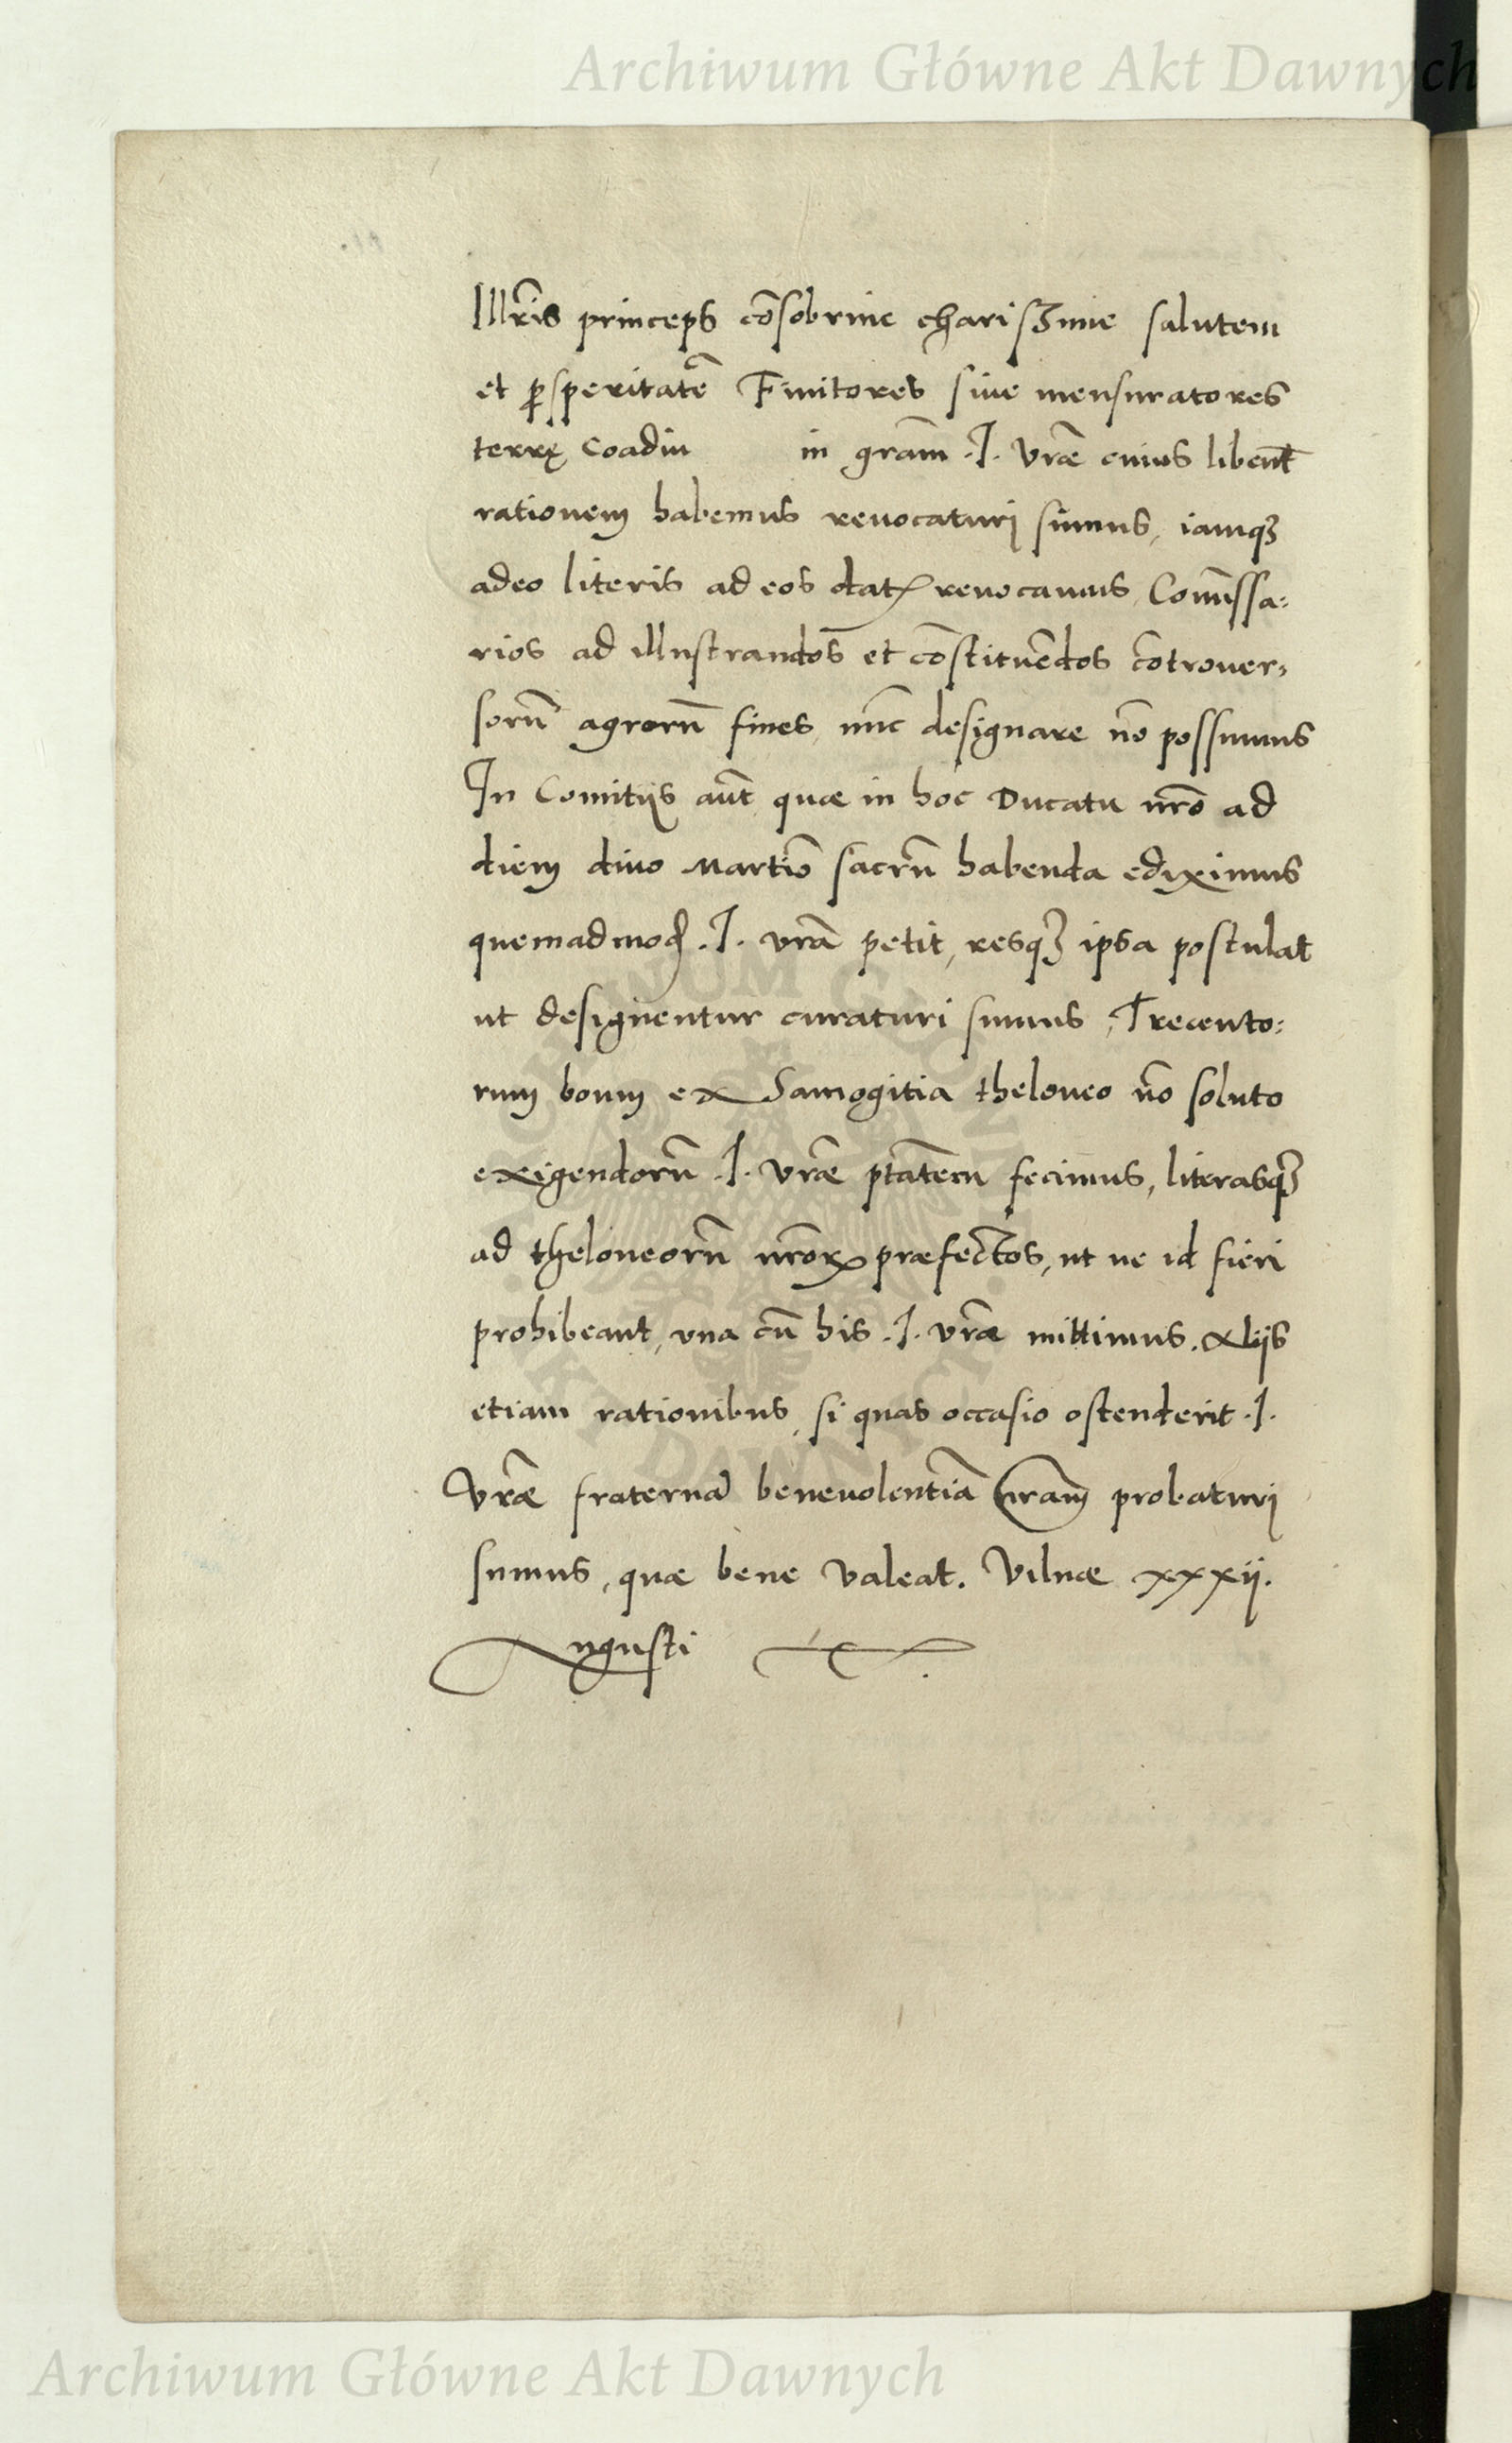 Archiwum Główne Akt Dawnych
Illr̃is princeps cõsobrine chariſzime salutem
et ꝓsperitatẽ Finitores siue mensuratores
terrę Coadiu in gram̃ .I. Vræ̃ cuius libent̃
rationem habemus reuocaturi sumus, iamqꝫ
adeo literis ad eos datꝭ reuocamus, Com̃issa:
rios ad illustrandos̃ et cõstituẽdos cõtrouer,
sorũ agrorũ fines, nũc designare nõ possumus
In Comitijs aut̃ quæ in hoc Ducatu nr̃o ad
diem diuo Martiõ sacrũ habenda ediximus
quemadmoḍ .I. vrã petit, resqꝫ ipsa postulat
ut designentur curaturi sumus, Trecento:
rum boum ex Samogitia theloneo nõ soluto
exigendorũ .I. Vræ̃ ptãtem fecimus, literasqꝫ
ad theloneorũ nr̃oꝝ præfectos, ut ne id fieri
prohibeant, vna cũ his .I. vræ̃ mittimus. Alijs
etiam rationibus, si quas occasio ostenderit .I.
Vræ̃ fraternã beneuolentiã nram̃ probaturi
sumus, quæ bene valeat. Vilnæ xxxij.
Augusti
ARCHIWUM GŁÓWNE AKT DAWNYCH
Archiwum Główne Akt Dawnych